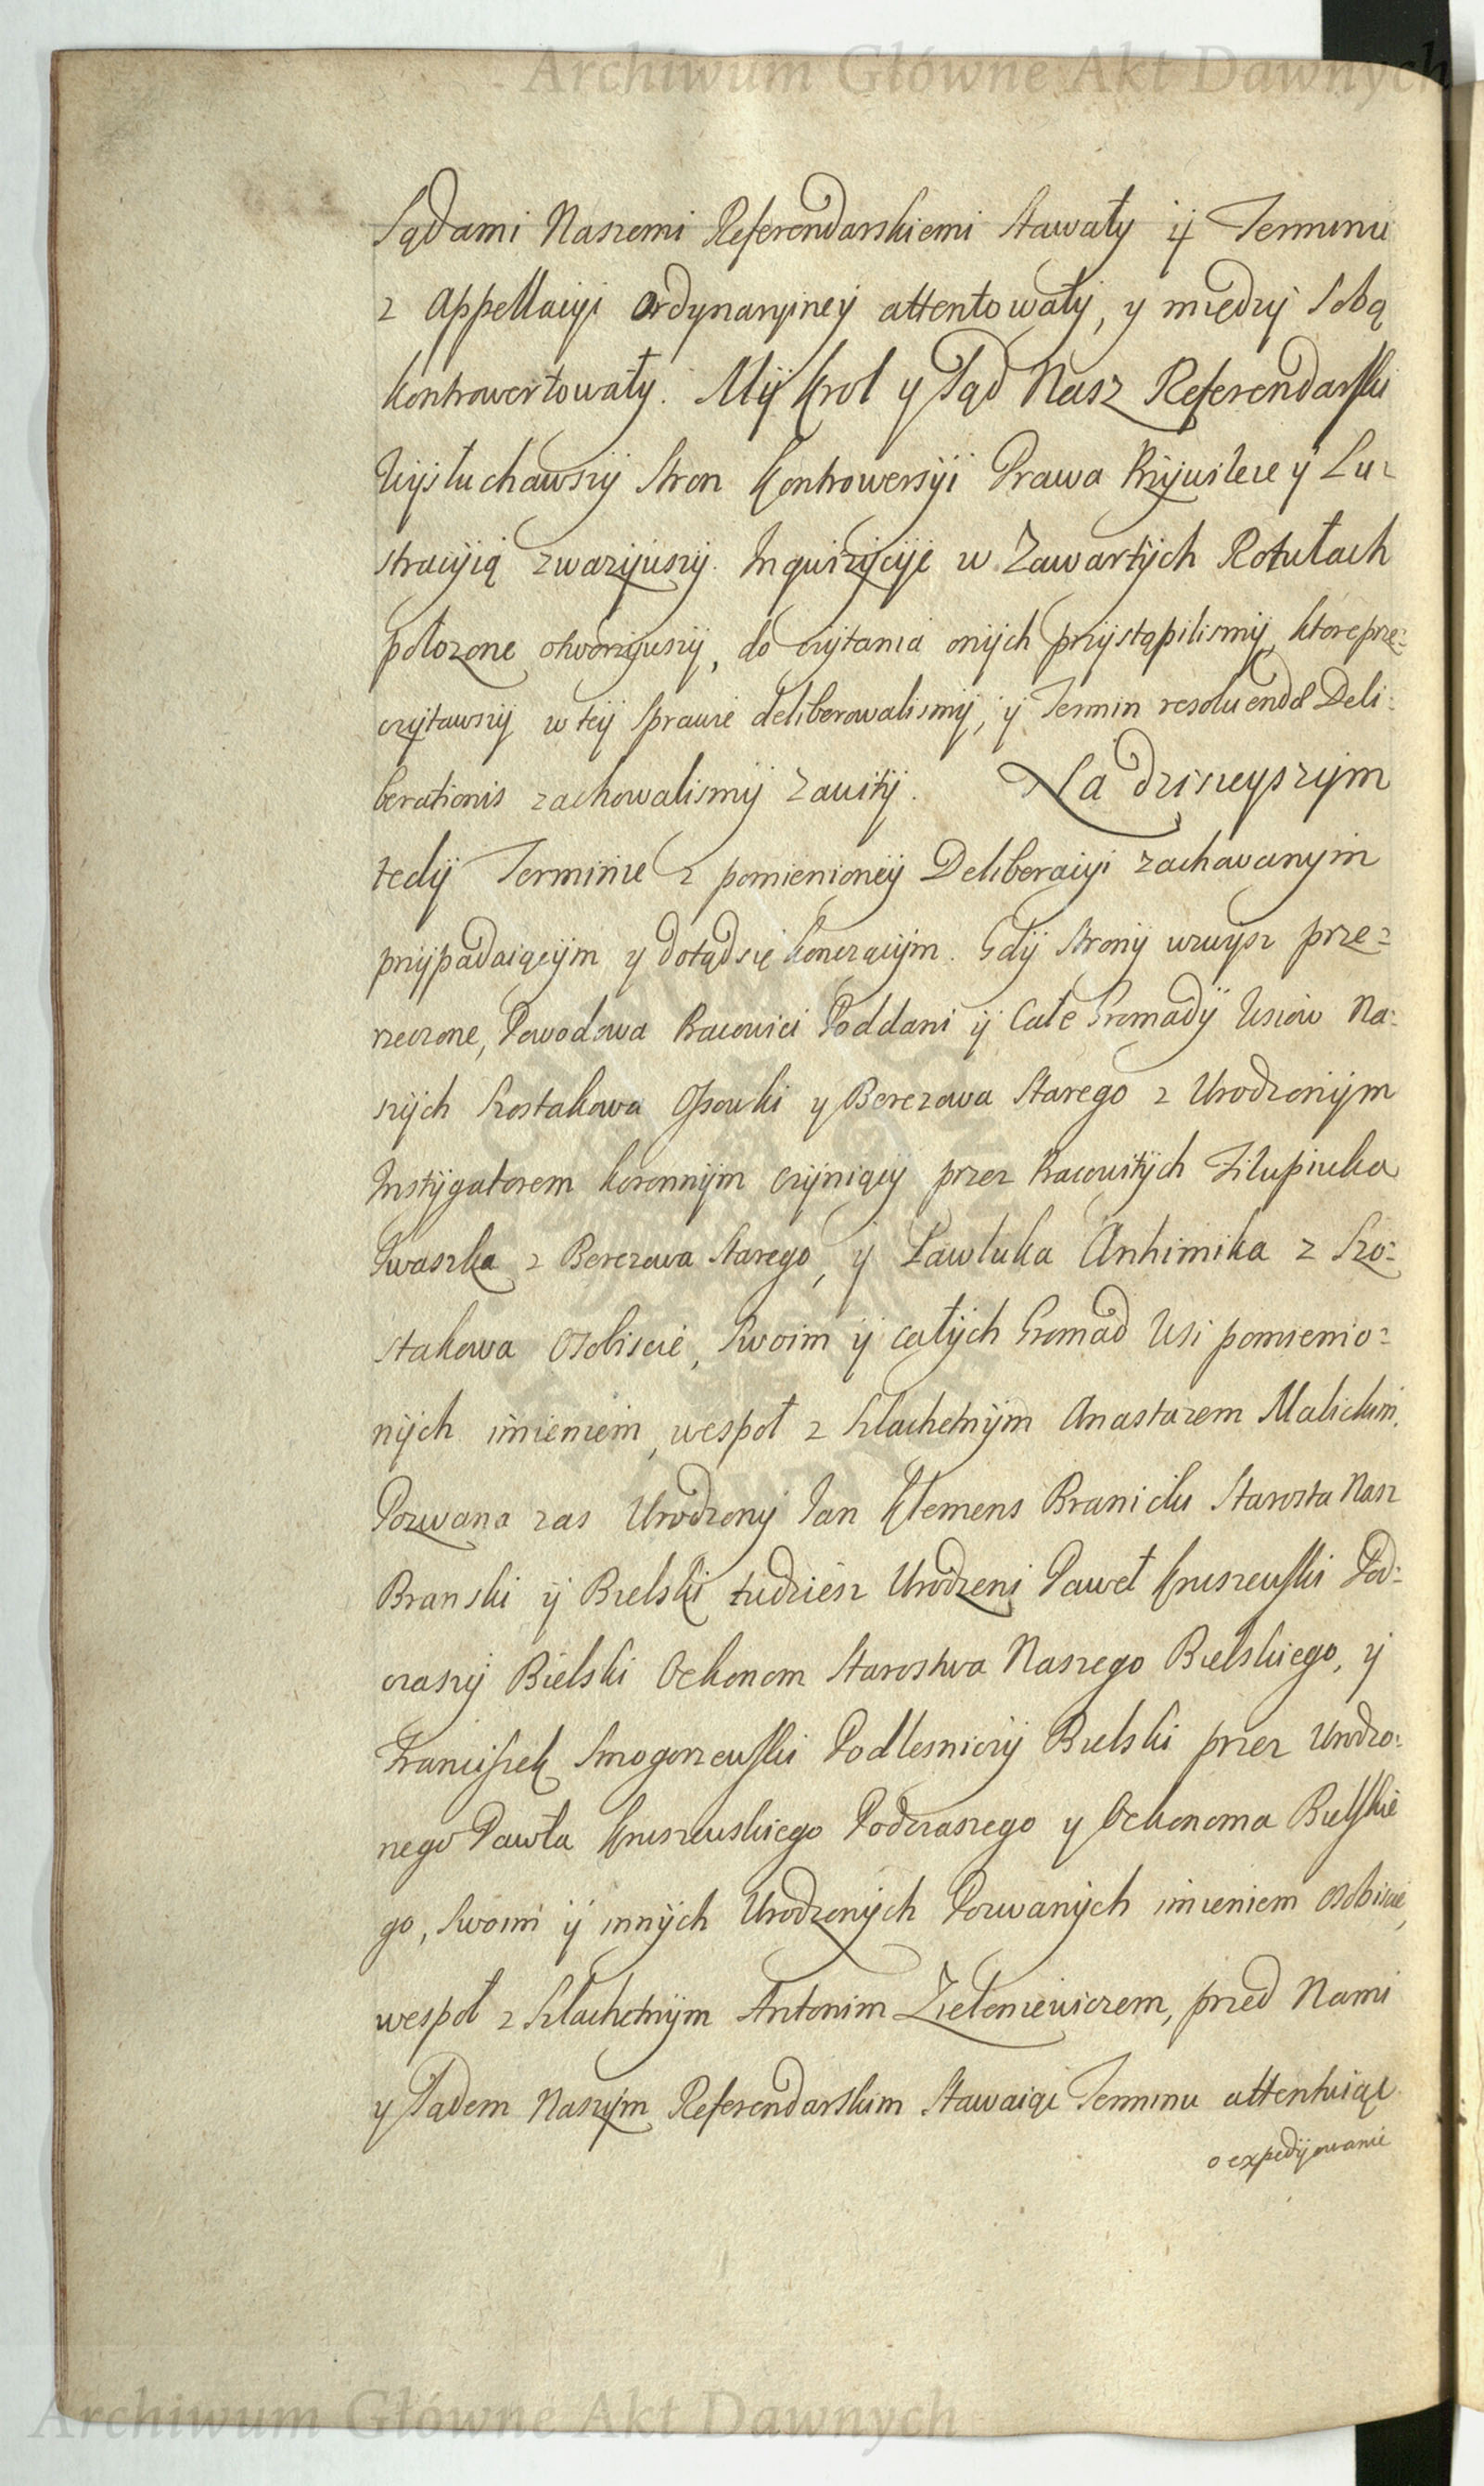 Archiwum Główne Akt Dawnych
Sądami Naszemi Referendarskiemi stawały ÿ Terminu
z Appellacyi ordynaryiney attentowały, y międzÿ sobą
kontrowertowały. Mÿ Krol y Sąd Nasz Referendarski
Wÿsłuchawszÿ stron kontrowersÿi Prawa Przÿwileie ÿ Lu=
stracÿią zwazÿwszÿ. Inquizÿcÿie w zawartÿch Rotułach
połozone otworzÿwszÿ, do czÿtania onÿch przÿstąpilismÿ, ktore prze=
czÿtawszÿ w teÿ sprawie deliberowalismÿ, ÿ Termin resoluendæ Deli=
berationis zachowalismÿ zawitÿ. Na dzisieyszÿm
tedÿ Terminie z pomienioneÿ Deliberacyi zachowanym
przÿpadaiącÿm y dotąd się konczącÿm. Gdÿ stronÿ wzwysz prze=
rzeczone, Powodowa Pracowici Poddani ÿ Całe Gromadÿ Wsiow Na=
szÿch Szostakowa Ossowki y Berezowa Starego z Urodzonÿm
Instÿgatorem koronnÿm czÿniącÿ przez Pracowitÿch Filipiuka
Iwaszka z Berezowa Starego, ÿ Pawluka Anhimika z Szo=
stakowa Osobiscie, swoim ÿ całÿch Gromad Wsi pomienio=
nÿch imieniem, wespoł z Szlachetnÿm Anastazem Malickim.
Pozwana zas Urodzonÿ Jan Klemens Branicki Starosta Nasz
Branski ÿ Bielski tudziesz Urodzeni Paweł Kruszewski Pod=
czaszÿ Bielski Oekonom Starostwa Naszego Bielskiego, ÿ
Franciszek Smogorzewski Podlesniczÿ Bielski przez Urodzo=
nego Pawła Kruszewskiego Podczaszego y Oekonoma Bielskie
go, swoim ÿ innÿch Urodzonÿch Pozwanÿch imieniem osobiscie,
wespoł z Szlachetnÿm Antonim Zieleniewiczem, przed Nami
y Sądem Naszÿm Referendarskim stawaiąc Terminu attentuiąc
o expedÿowanie
Archiwum Główne Akt Dawnych